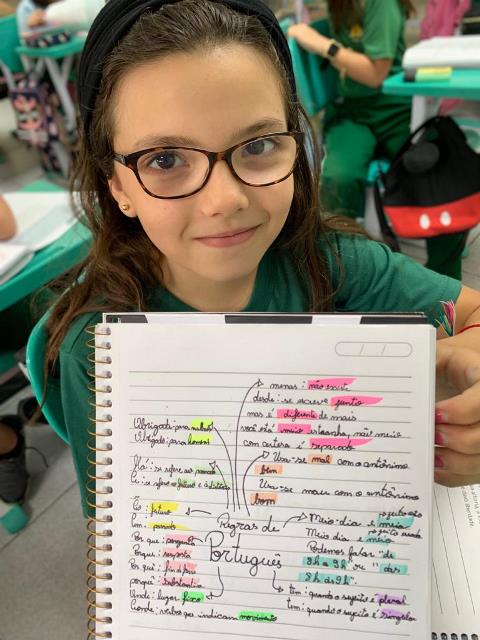 menas: não existe
desde: se escreve junto
mas é diferente de mais
você está meio estranha, não meia
com certeza é separado
Usa-se mal com o antônimo
bem
Usa-se mau com o antônimo
bom
Obrigada: para mulher
Obrigado: para homem
Há: se refere ao passado
A: se refere ao futuro e à distância
Ão: futuro
am: passado
Por que: pergunta
Porque: resposta
Por quê: fim de frase
porquê: substantivo
Onde: lugar fixo
Aonde: verbos que indicam movimento
Regras de
Português
Meio-dia e meia
Meio dia e meio
Podemos falar "de
8h a 9h" ou "das
8h às 9h".
têm: quando o sujeito é plural
tem: quando o sujeito é singular